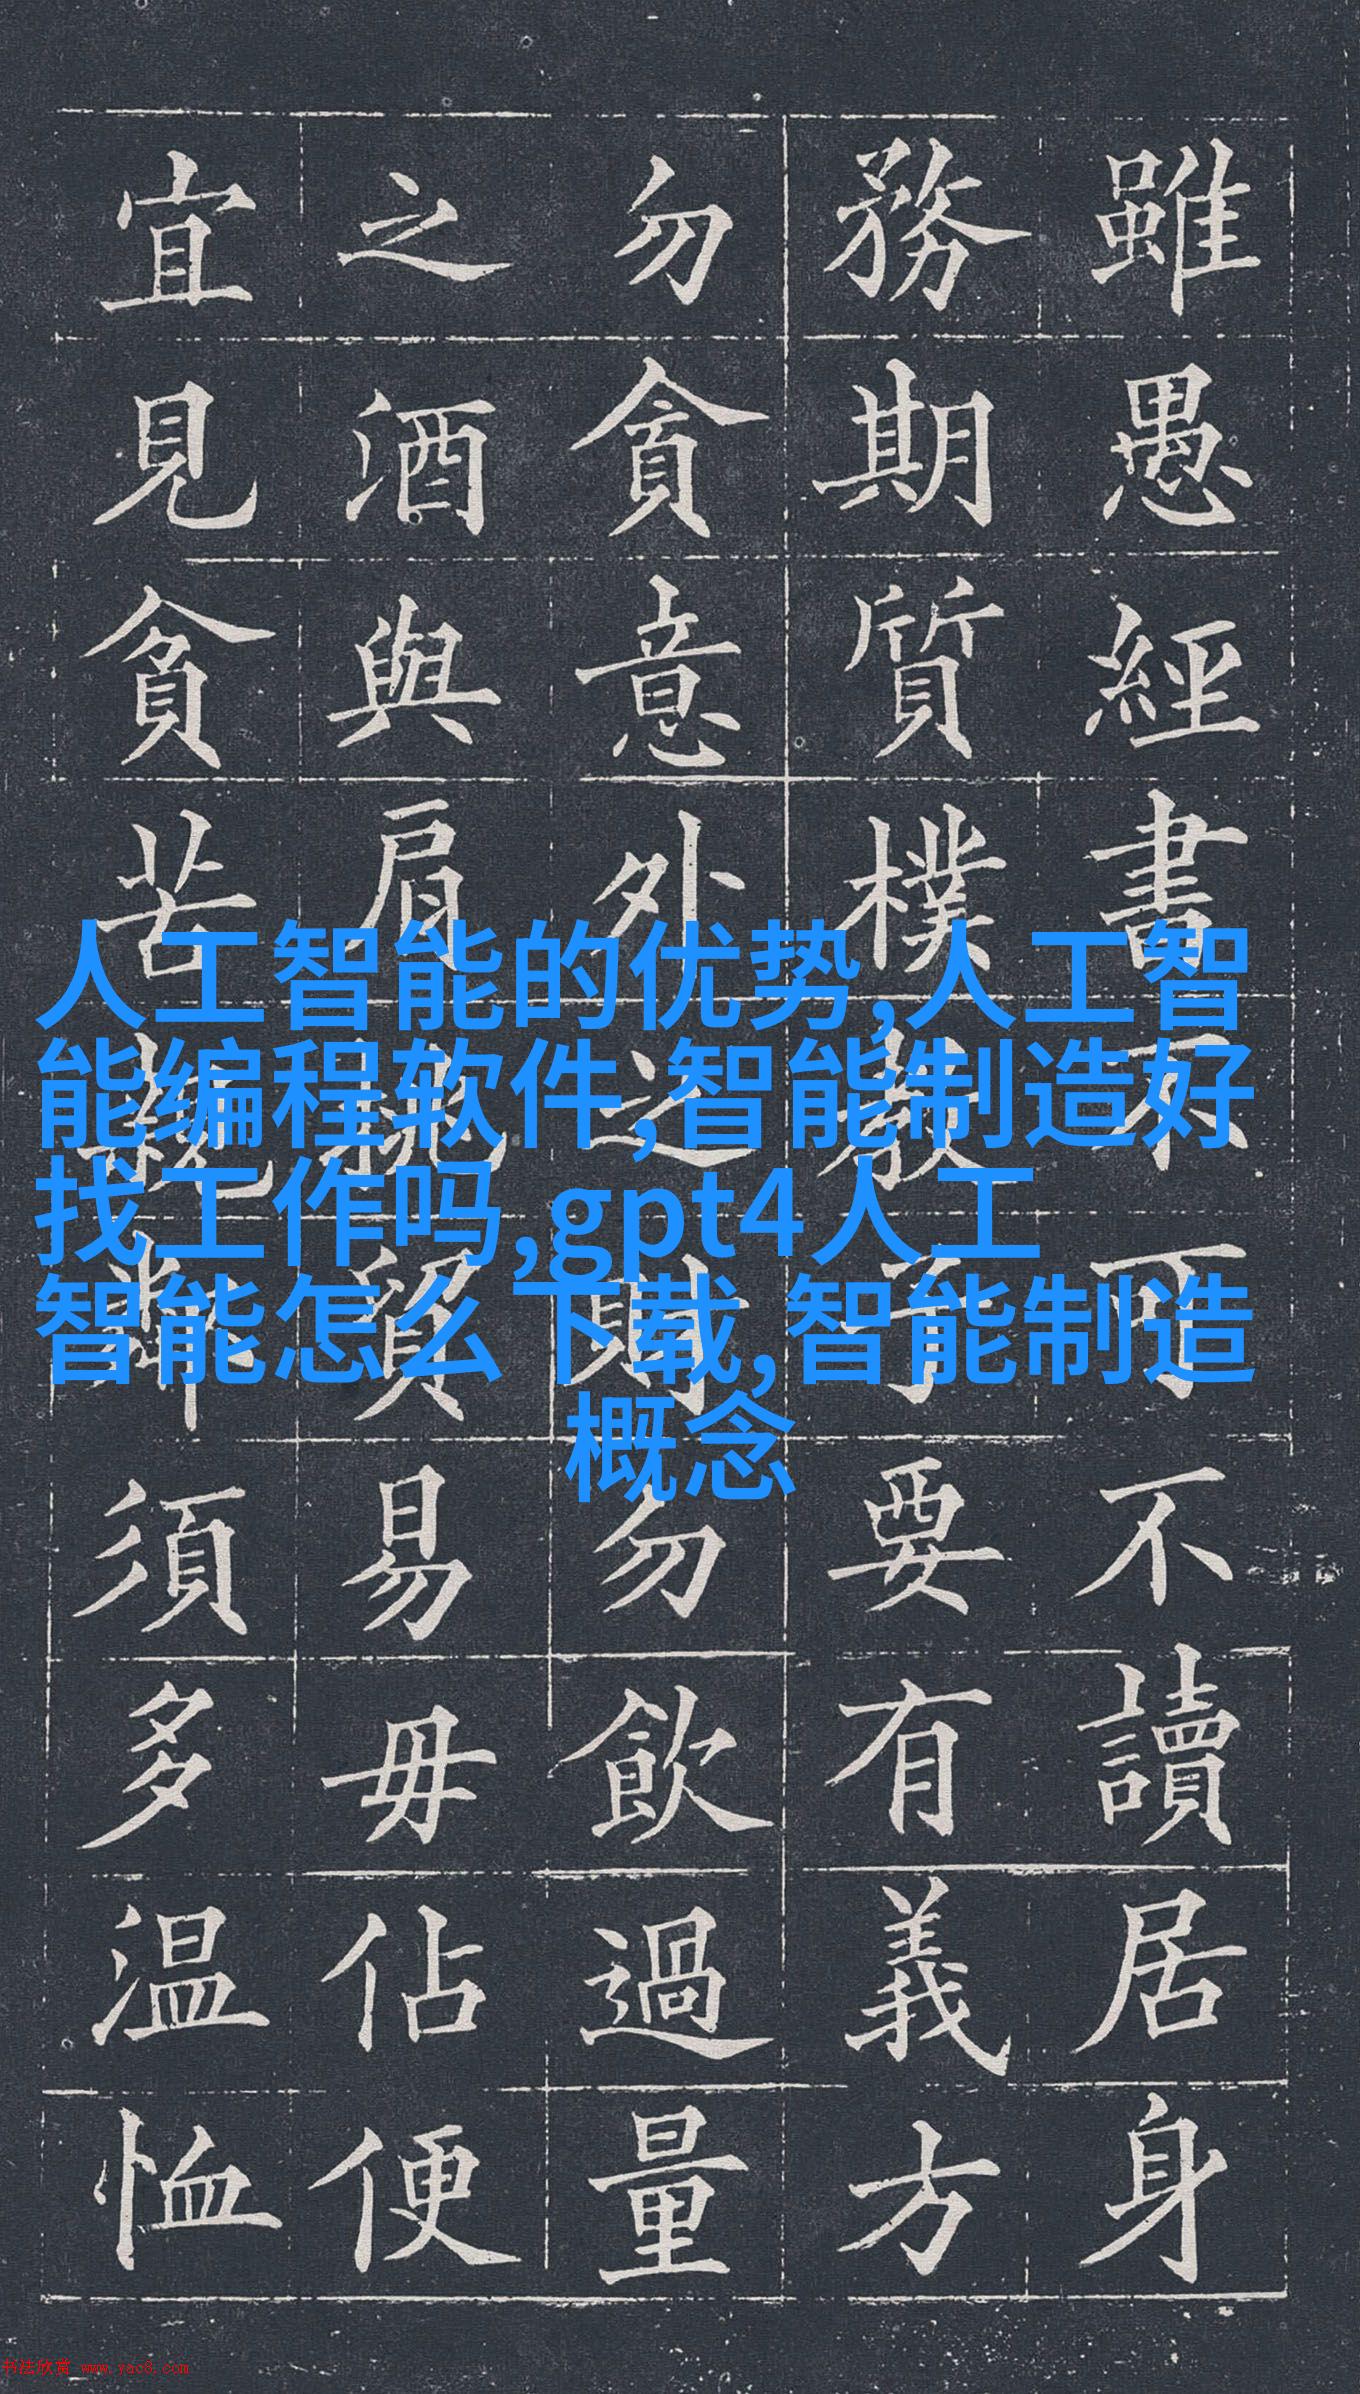 雖愚經書不可不讀居身
務期質樸教子要有義方
勿貪意外之財勿飲過量
之酒與肩挑貿易毋佔便
宜見貧苦親鄰須多温恤
人工智能的优势,人工智
能编程软件,智能制造好
找工作吗,gpt4人工
智能怎么下载,智能制造
概念
书法欣赏 www.yac8.com